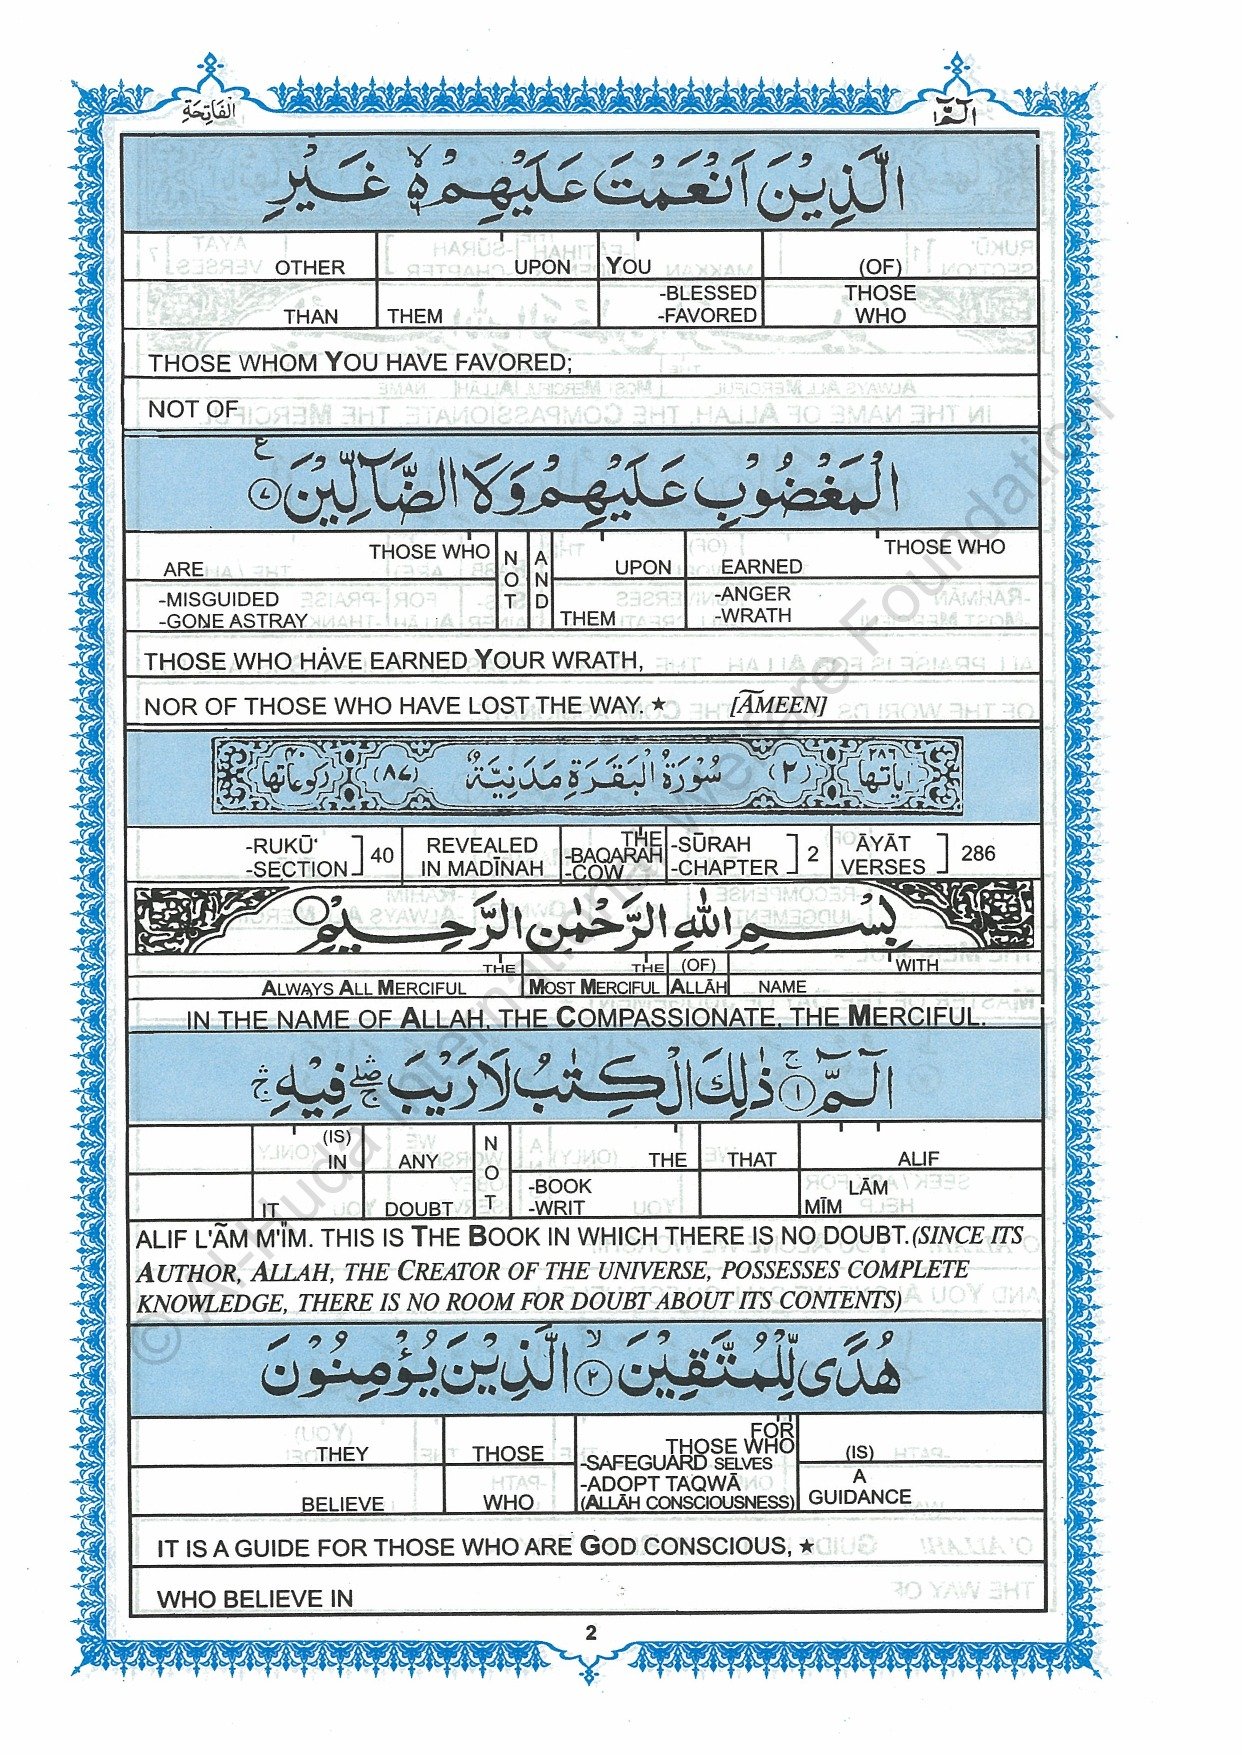 الٓمّٓ ١
الْفَاتِحَة
الَّذِيْنَ اَنْعَمْتَ عَلَيْهِمْ ۙ۬ غَيْرِ
OTHER UPON YOU (OF)
THAN THEM -BLESSED THOSE
-FAVORED WHO
THOSE WHOM YOU HAVE FAVORED;
NOT OF
الْمَغْضُوْبِ عَلَيْهِمْ وَلَا الضَّآلِّيْنَ ۧ ٧
THOSE WHO NOT AND UPON EARNED THOSE WHO
ARE
-MISGUIDED THEM -ANGER
-GONE ASTRAY -WRATH
THOSE WHO HAVE EARNED YOUR WRATH,
NOR OF THOSE WHO HAVE LOST THE WAY. ★ [ÃMEEN]
اٰيَاتُهَا ٢٨٦ (٢) سُوْرَةُ الْبَقَرَةِ مَدَنِيَّةٌ (٨٧) رُكُوْعَاتُهَا ٤٠
-RUKŪ' REVEALED THE -SŪRAH ĀYĀT
-SECTION] 40 IN MADĪNAH -BAQARAH -CHAPTER] 2 VERSES] 286
-COW
بِسْمِ اللهِ الرَّحْمٰنِ الرَّحِيْمِ
THE THE (OF) WITH
ALWAYS ALL MERCIFUL MOST MERCIFUL ALLĀH NAME
IN THE NAME OF ALLAH, THE COMPASSIONATE, THE MERCIFUL.
الٓمّٓ ۚ ١ ذٰلِكَ الْكِتٰبُ لَا رَيْبَ ۛۖۚ فِيْهِ ۛۚ
(IS)
IN ANY NOT THE THAT ALIF
IT DOUBT -BOOK LĀM
-WRIT MĪM
ALIF L'ÃM M'ĬM. THIS IS THE BOOK IN WHICH THERE IS NO DOUBT.(SINCE ITS
AUTHOR, ALLAH, THE CREATOR OF THE UNIVERSE, POSSESSES COMPLETE
KNOWLEDGE, THERE IS NO ROOM FOR DOUBT ABOUT ITS CONTENTS)
هُدًى لِّلْمُتَّقِيْنَ ۙ ٢ الَّذِيْنَ يُؤْمِنُوْنَ
FOR
THEY THOSE THOSE WHO (IS)
-SAFEGUARD SELVES
BELIEVE WHO -ADOPT TAQWĀ A
(ALLĀH CONSCIOUSNESS) GUIDANCE
IT IS A GUIDE FOR THOSE WHO ARE GOD CONSCIOUS, ★
WHO BELIEVE IN
2
© Al-Huda International Welfare Foundation